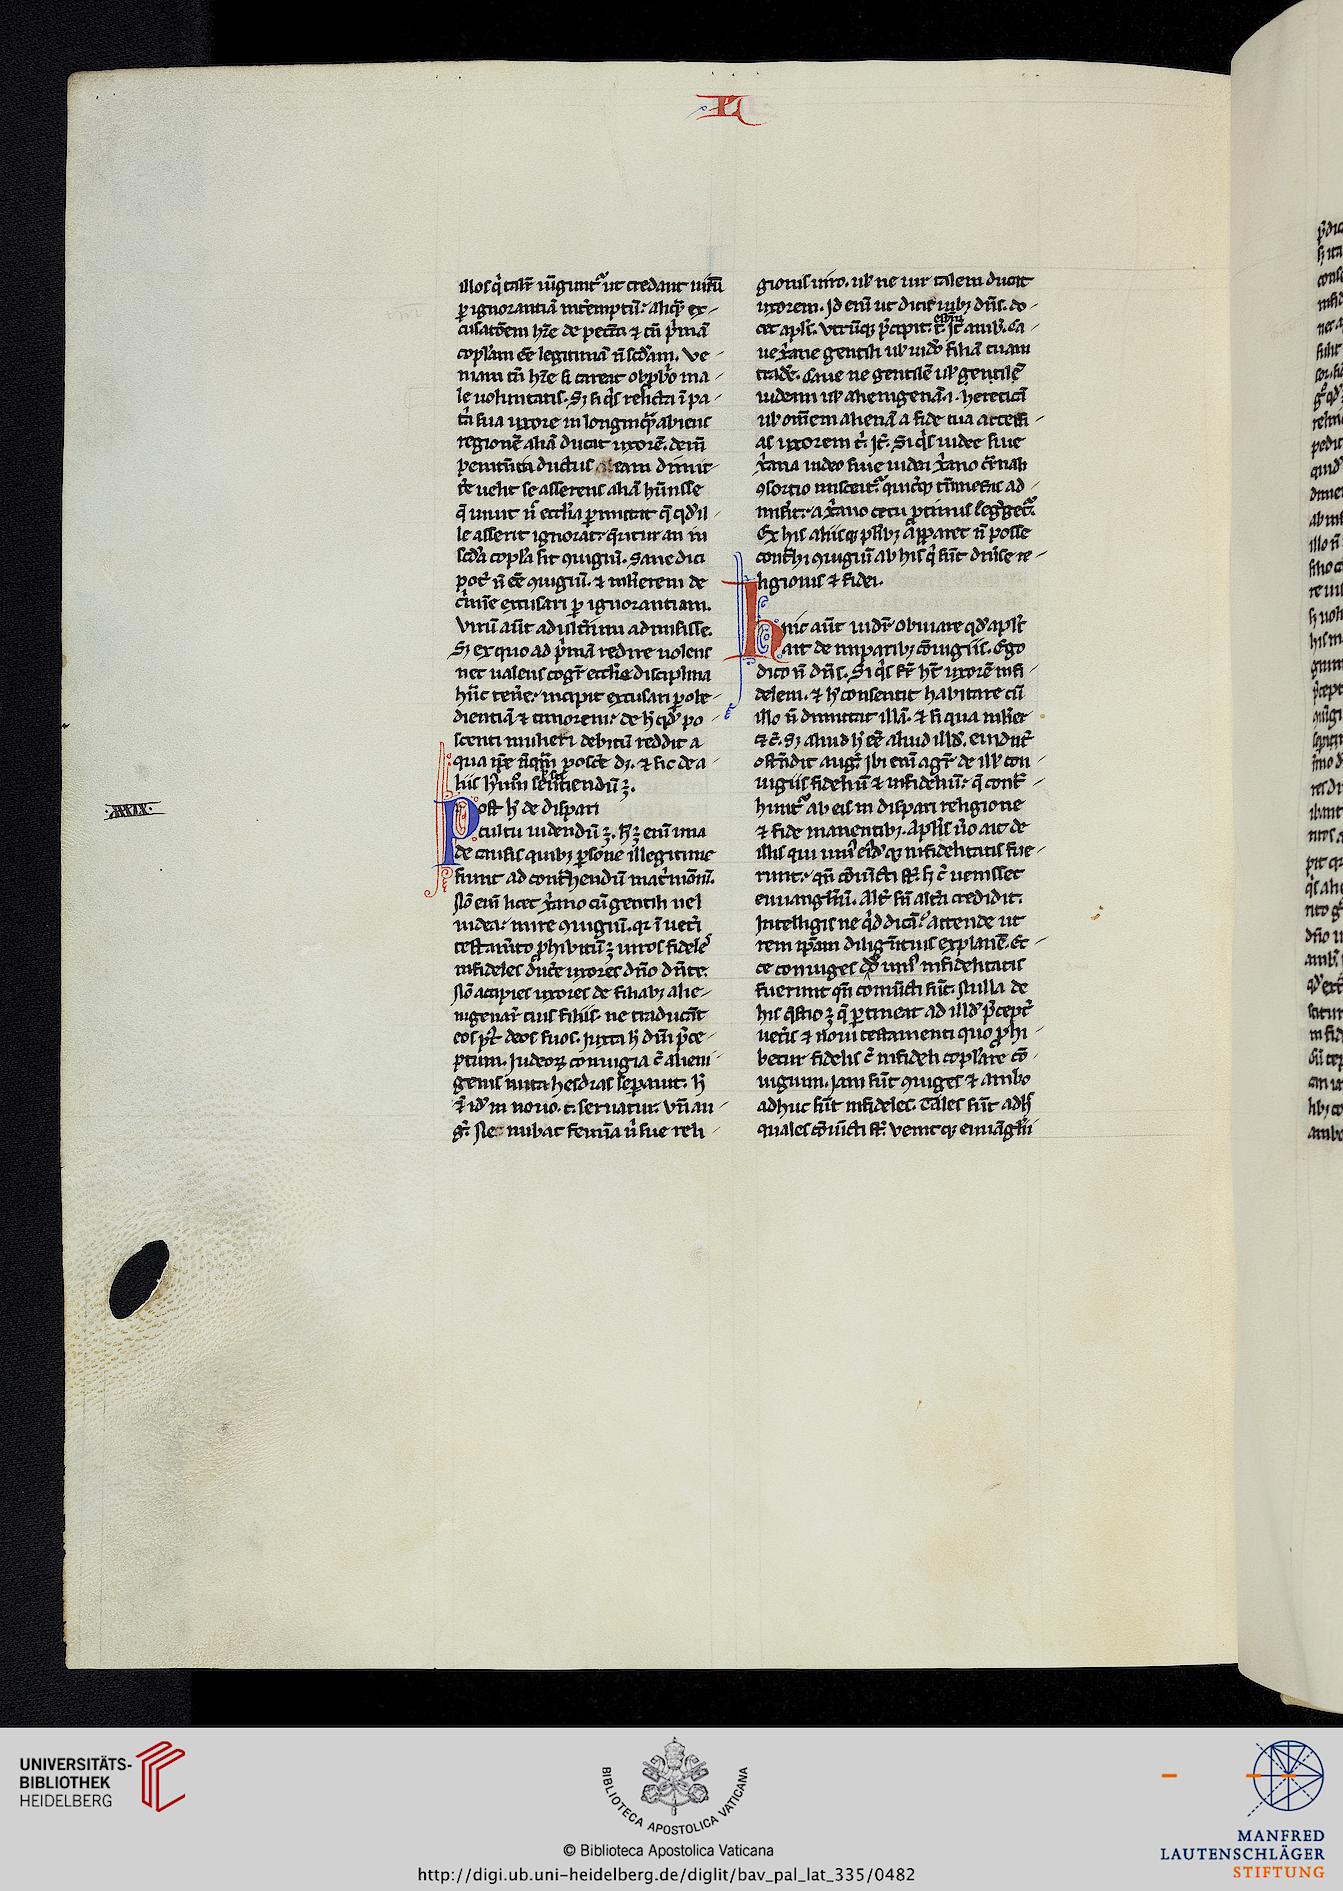 L
illos q̇ talit̾ iūgunt᷑ ut credant uirū
ꝑ ignorantiā int̾emptū: aliqͣ ex-
cusatōem hr̄e de pecc̄o ⁊ cū p̾mā
copl̾am eē legitimā n̄ scd̾am. Ve-
niam tn̄ hr̄e si careat obp̾brio ma-
le uoluntatis. Sꝫ si qͥs relicta ī pa-
t̾a sua uxore in longinqͣ abiens
regionē aliā ducat uxorē. dein̄
penitētia ductus eam dimit-
t̾e uelit se asserens aliā hūisse
q̄ uiuit n̄ eccl̾ia ꝑmittat q̄ qd̾ il-
le asserit ignorat: q̄ritur an in
scd̾a copl̾a sit ɔiugiū. Sane dici
pot̾ n̄ eē ɔiugiū. ⁊ mul̾ierem de
c̾mīe excusari ꝑ ignorantiam.
Virū aūt adult̾ium admisisse.
Sꝫ ex quo ad p̾mā redire uolens
nec ualens cogit̾ eccl̾ie disciplina
hn̄c ten̾e: incipit excusari ꝑ obe-
dientiā ⁊ timorem: de h̾ qd̾ po-
scenti mulieri debitū reddit a
qua ip̄e nūqͣm posc̾e dꝫ. ⁊ sic de a-
liis hm̾oi sentiendū ē.
Post h̾ de dispari
cultu uidendū ē. H̾ ē enī una
de causis quibꝫ ꝑsone illegitime
fiunt ad cont̾hendū mat̾moniū.
Nō enī licet xp̄iano cū gentili uel
iudea: inire ɔiugiū. qꝛ ī uet̾i
testam̄to ꝓhibitū ē uiros fidel̾
infideles duc̾e uxores dn̄o dn̄te.
Nō accipies uxores de filiabꝫ alie-
nigenar̾ tuis filiis. ne traducāt
eos p̾t deos suos. Iuxta h̾ dn̄i p̾ce-
ptum. Iudeoꝝ coniugia c̄ alieni-
genis inita hesdras seꝑauit. H̾
⁊ id̾ in nouo. t. seruatur. Vn̄ au-
g̾. Ne nubat femīa n̄ sue reli-
gionis uiro. ul̾ ne uir talem ducat
uxorem. Id enī ut dicis iubꝫ dn̄s. do-
cet apl̾s. Vtrūqꝫ p̾cipit. t̄. It̾ ambr̾. Ca-
ue xp̄iane gentili ul̾ iudeo filiā tuam
trade̾. Caue ne gentilē ul̾ gentilē
iudeam ul̾ alienigenā .i. hereticā
ul̾ om̄em alienā a fide tua accersi-
as uxorem t̾. It̾. Si qͥs iudee siue
xp̄iana iudeo siue iudea xp̄iano carnali
ɔsortio misceat᷑. quicūqꝫ tm̄ nefas ad-
miserit. a xp̄iano cetu protinus segreget᷑.
Ex his aliisqꝫ plr̾ibꝫ apparet n̄ posse
cont̾hi ɔiugiū ab his q̇ sūt diu̾se re-
ligionis ⁊ fidei.
Huic aūt uidet᷑ obuiare qd̾ apl̾s
ait de imparibꝫ cōiugiis. Ego
dico n̄ dn̄s. Si qͥs fr̄ ht̾ uxorē infi-
delem. ⁊ h̾ consentit habitare cū
illo n̄ dimittat illā. ⁊ si qua mul̾ier
⁊ c̾. Sꝫ aliud h̾ eē aliud illd̾. euident̾
ostn̄dit aug̾. Ibi enī agit᷑ de ill̾ con-
iugiis fideliū ⁊ infideliū: q̄ cont̾-
hunt᷑ ab eis in dispari religione
⁊ fide manentibꝫ. Apl̾s u̾o ait de
illis qui uni̾ eiusd̾qꝫ infidelitatis fue-
runt. qn̄ cōiūcti st̄. sꝫ c̄ uenisset
euuangl̾iū. alt̾ sn̄ alt̾a credidit.
Intelligis ne qͥd dicā? attende ut
rem ip̄am diligentius explanē. Ec-
ce coniuges uni̾ infidelitatis
fuerunt qn̄ coniūcti sūt. Nulla de
his q̄stio ē q̄ ꝑtineat ad illd̾ p̾cept̄
uet̾is ⁊ noui testamenti quo ꝓhi-
betur fidelis c̄ infideli copl̾are cō-
iugium. Iam sūt ɔiuges ⁊ ambo
adhuc sūt infideles. Tales sūt adh̾
quales cōiūcti st̄. Venitqꝫ euuāgl̾ii
·XXXIX·
UNIVERSITÄTS-
BIBLIOTHEK
HEIDELBERG
BIBLIOTECA APOSTOLICA VATICANA
© Biblioteca Apostolica Vaticana
http://digi.ub.uni-heidelberg.de/diglit/bav_pal_lat_335/0482
MANFRED
LAUTENSCHLÄGER
STIFTUNG